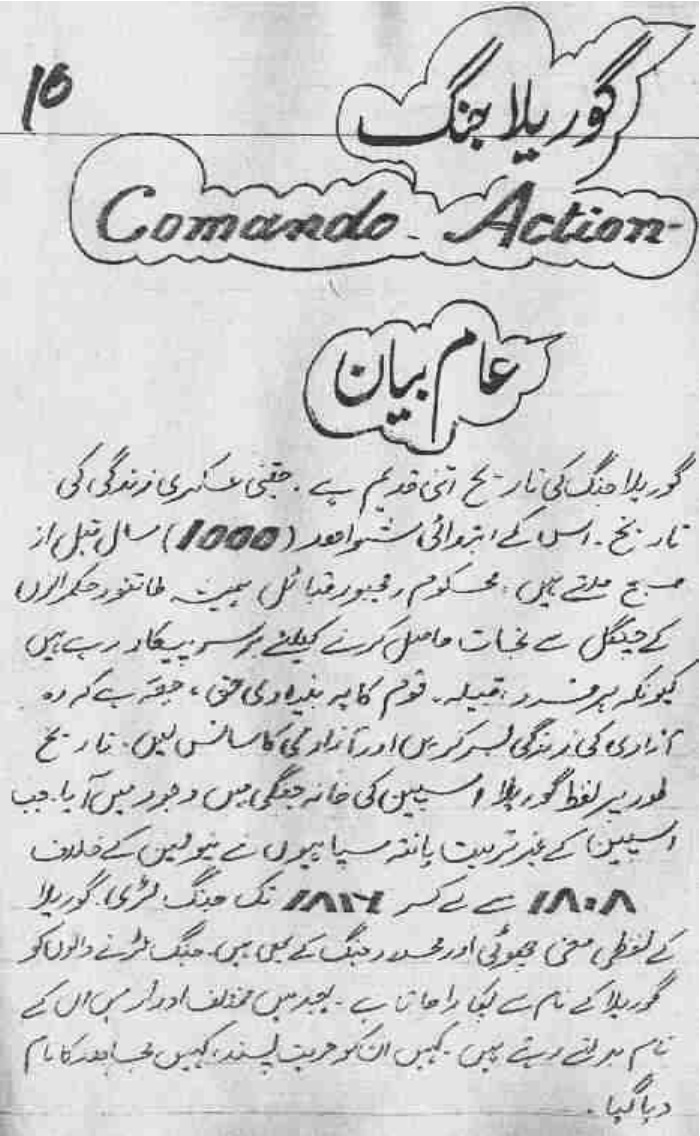 16
گوریلا جنگ
Comando Action
عام بیان
گوریلا جنگ کی تاریخ اتنی قدیم ہے۔ جتنی عسکری زندگی کی
تاریخ۔ اس کے ابتدائی شواھد (1000) سال قبل از
مسیح ملتے ہیں، محکوم و مجبور قبائل ہمیشہ طاقتور حکمرانوں
کے چنگل سے نجات حاصل کرنے کیلئے برسرِ پیکار رہے ہیں
کیونکہ ہر فرد، قبیلہ۔ قوم کا یہ بنیادی حق، ہے کہ وہ
آزادی کی زندگی بسر کریں اور آزادی کا سانس لیں۔ تاریخ
طور پر لفظ گوریلا اسپین کی خانہ جنگی میں وجود میں آیا۔ جب
اسپین کے غیر تربیت یافتہ سپاہیوں نے نپولین کے خلاف
۱۸۰۸ سے لے کر ۱۸۱۴ تک جنگ لڑی، گوریلا
کے لفظی معنی چھوٹی اور محدود جنگ کے ہیں۔ جنگ لڑنے والوں کو
گوریلا کے نام سے پکارا جاتا ہے۔ بعد میں مختلف ادوار میں ان کے
نام بدلتے رہتے ہیں۔ کہیں ان کو حریت پسند، کہیں مجاھد کا نام
دیا گیا۔